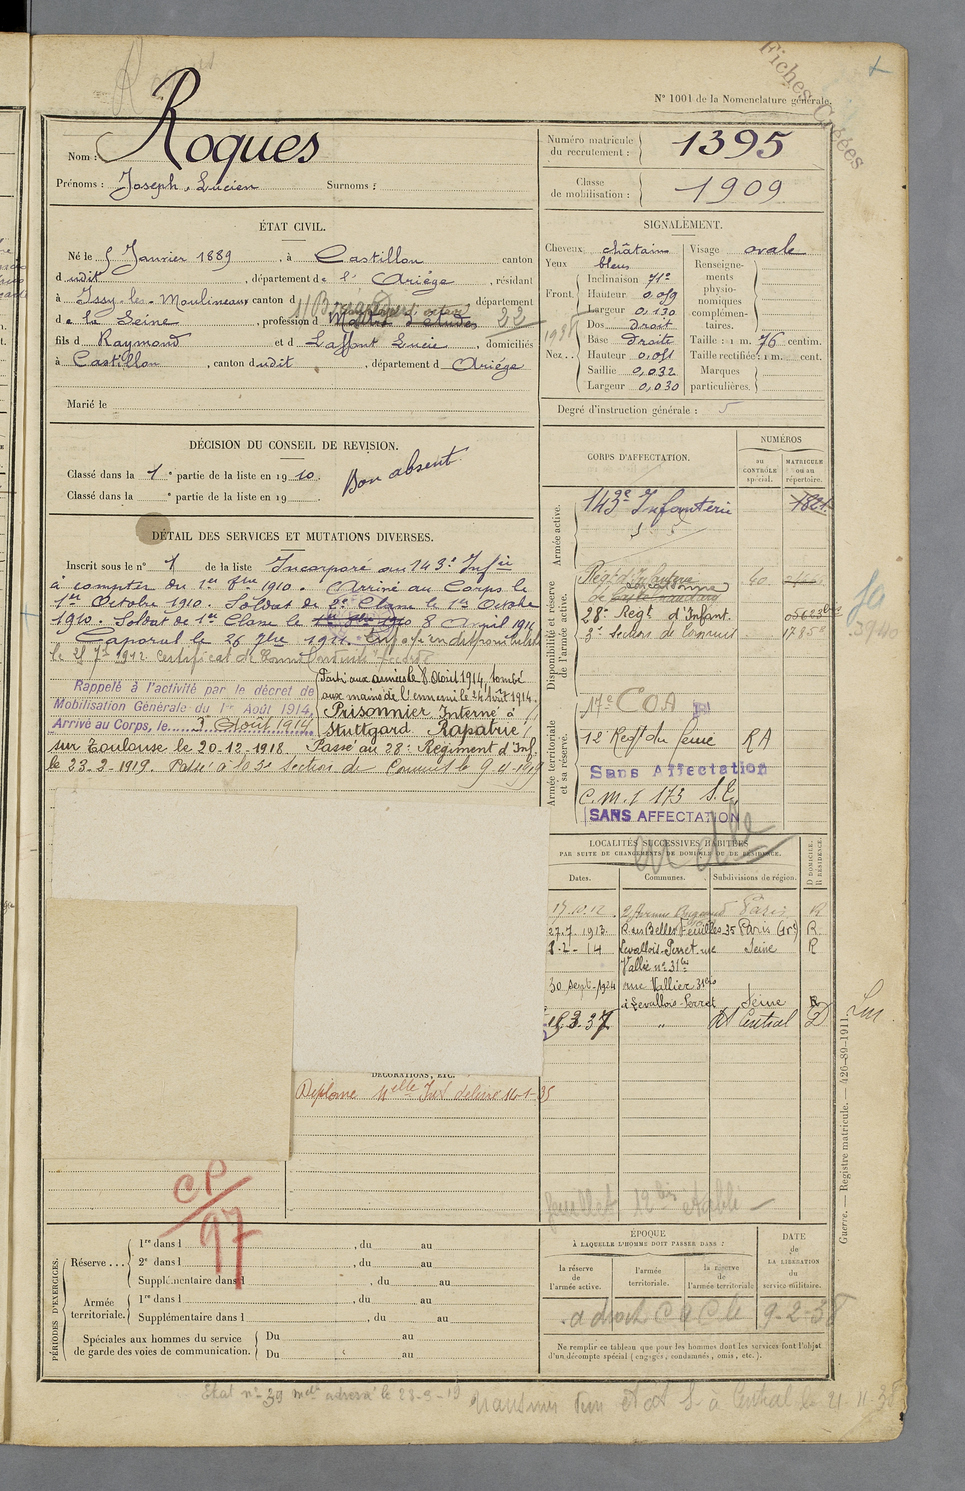 Fiches Créées
N° 1001 de la Nomenclature générale.
Nom : Roques
Prénoms : Joseph, Lucien Surnoms :
Numéro matricule du recrutement : 1395
Classe de mobilisation : 1909
ÉTAT CIVIL.
Né le 5 Janvier 1889, à Castillon canton
dudit, département de l'Ariége, résidant
à Issy-les-Moulineaux canton d département
de la Seine, profession d 22
fils d Raymond et d Laffont Lucie, domiciliés
à Castillon, canton dudit, département d Ariége
Marié le
SIGNALEMENT.
Cheveux châtains
Yeux bleus
Front. Inclinaison
Hauteur 0,059
Largeur 0,130
Nez... Dos droit
Base droite
Hauteur 0,051
Saillie 0,032
Largeur 0,030
Visage ovale
Renseignements physionomiques complémentaires.
Taille : 1 m. 76 centim.
Taille rectifiée : 1 m. cent.
Marques particulières.
Degré d'instruction générale : 5
DÉCISION DU CONSEIL DE REVISION.
Classé dans la 1e partie de la liste en 1910. Bon absent
Classé dans la e partie de la liste en 19
DÉTAIL DES SERVICES ET MUTATIONS DIVERSES.
Inscrit sous le n° 1 de la liste Incorporé au 143e Infie
à compter du 1er 8bre 1910. Arrivé au Corps le
1er Octobre 1910. Soldat de 2e Classe le 1er Octobre
1910. Soldat de 1re Classe le 8 Avril 1911
Caporal le 26 9bre 1911. Envoyé en disponibilité
le 25 7bre 1912. Certificat de Bonne Conduite accordé
Rappelé à l'activité par le décret de
Mobilisation Générale du 1er Août 1914,
Arrivé au Corps, le 3 Août 1914
Parti aux armées le 8 Août 1914, tombé
aux mains de l'ennemi le 24 Août 1914.
Prisonnier Interné à
Stuttgard Rapatrié
sur Toulouse le 20-12-1918. Passé au 28e Régiment d'Inf.
le 23-2-1919. Passé à la 3e Section de Commis le 9-4-1919
CORPS D'AFFECTATION.
NUMÉROS
au CONTRÔLE spécial.
MATRICULE ou au répertoire.
Armée active.
143e Infanterie 1821
Disponibilité et réserve de l'armée active.
Régt d'Infanterie 40
de Castelnaudary
28e Regt d'Infant.
3e Section de Commis 17858
Armée territoriale et sa réserve.
17e COA
12 Regt du Génie RA
Sans Affectation
C.M.I 173
SANS AFFECTATION
LOCALITÉS SUCCESSIVES HABITÉES
PAR SUITE DE CHANGEMENTS DE DOMICILE OU DE RÉSIDENCE.
Dates. Communes. Subdivisions de région. D DOMICILE. R RÉSIDENCE.
17.10.12 Paris R
27.7.1913 R. des Belles Feuilles 35 Paris R
1-2-14 Levallois-Perret rue Seine R
Vallier n° 31 bis
30 Sept. 1924 rue Vallier 31 bis
à Levallois-Perret Seine R
15.3.37 " Central D
DÉCORATIONS, ETC.
CP/97
feuillet 12 bis établi
PÉRIODES D'EXERCICES.
Réserve... 1re dans l , du au
2e dans l , du au
Supplémentaire dans l , du au
Armée territoriale. 1re dans l , du au
Supplémentaire dans l , du au
Spéciales aux hommes du service de garde des voies de communication. Du au
Du au
ÉPOQUE
À LAQUELLE L'HOMME DOIT PASSER DANS :
la réserve de l'armée active.
l'armée territoriale.
la réserve de l'armée territoriale
DATE de LA LIBÉRATION du service militaire.
a droit C a C le 9-2-38
Ne remplir ce tableau que pour les hommes dont les services font l'objet
d'un décompte spécial (engagés, condamnés, omis, etc.).
Guerre. — Registre matricule. — 426-89-1911.
Etat n° 39 adressé le 23-9-19
à Central le 21-11-38